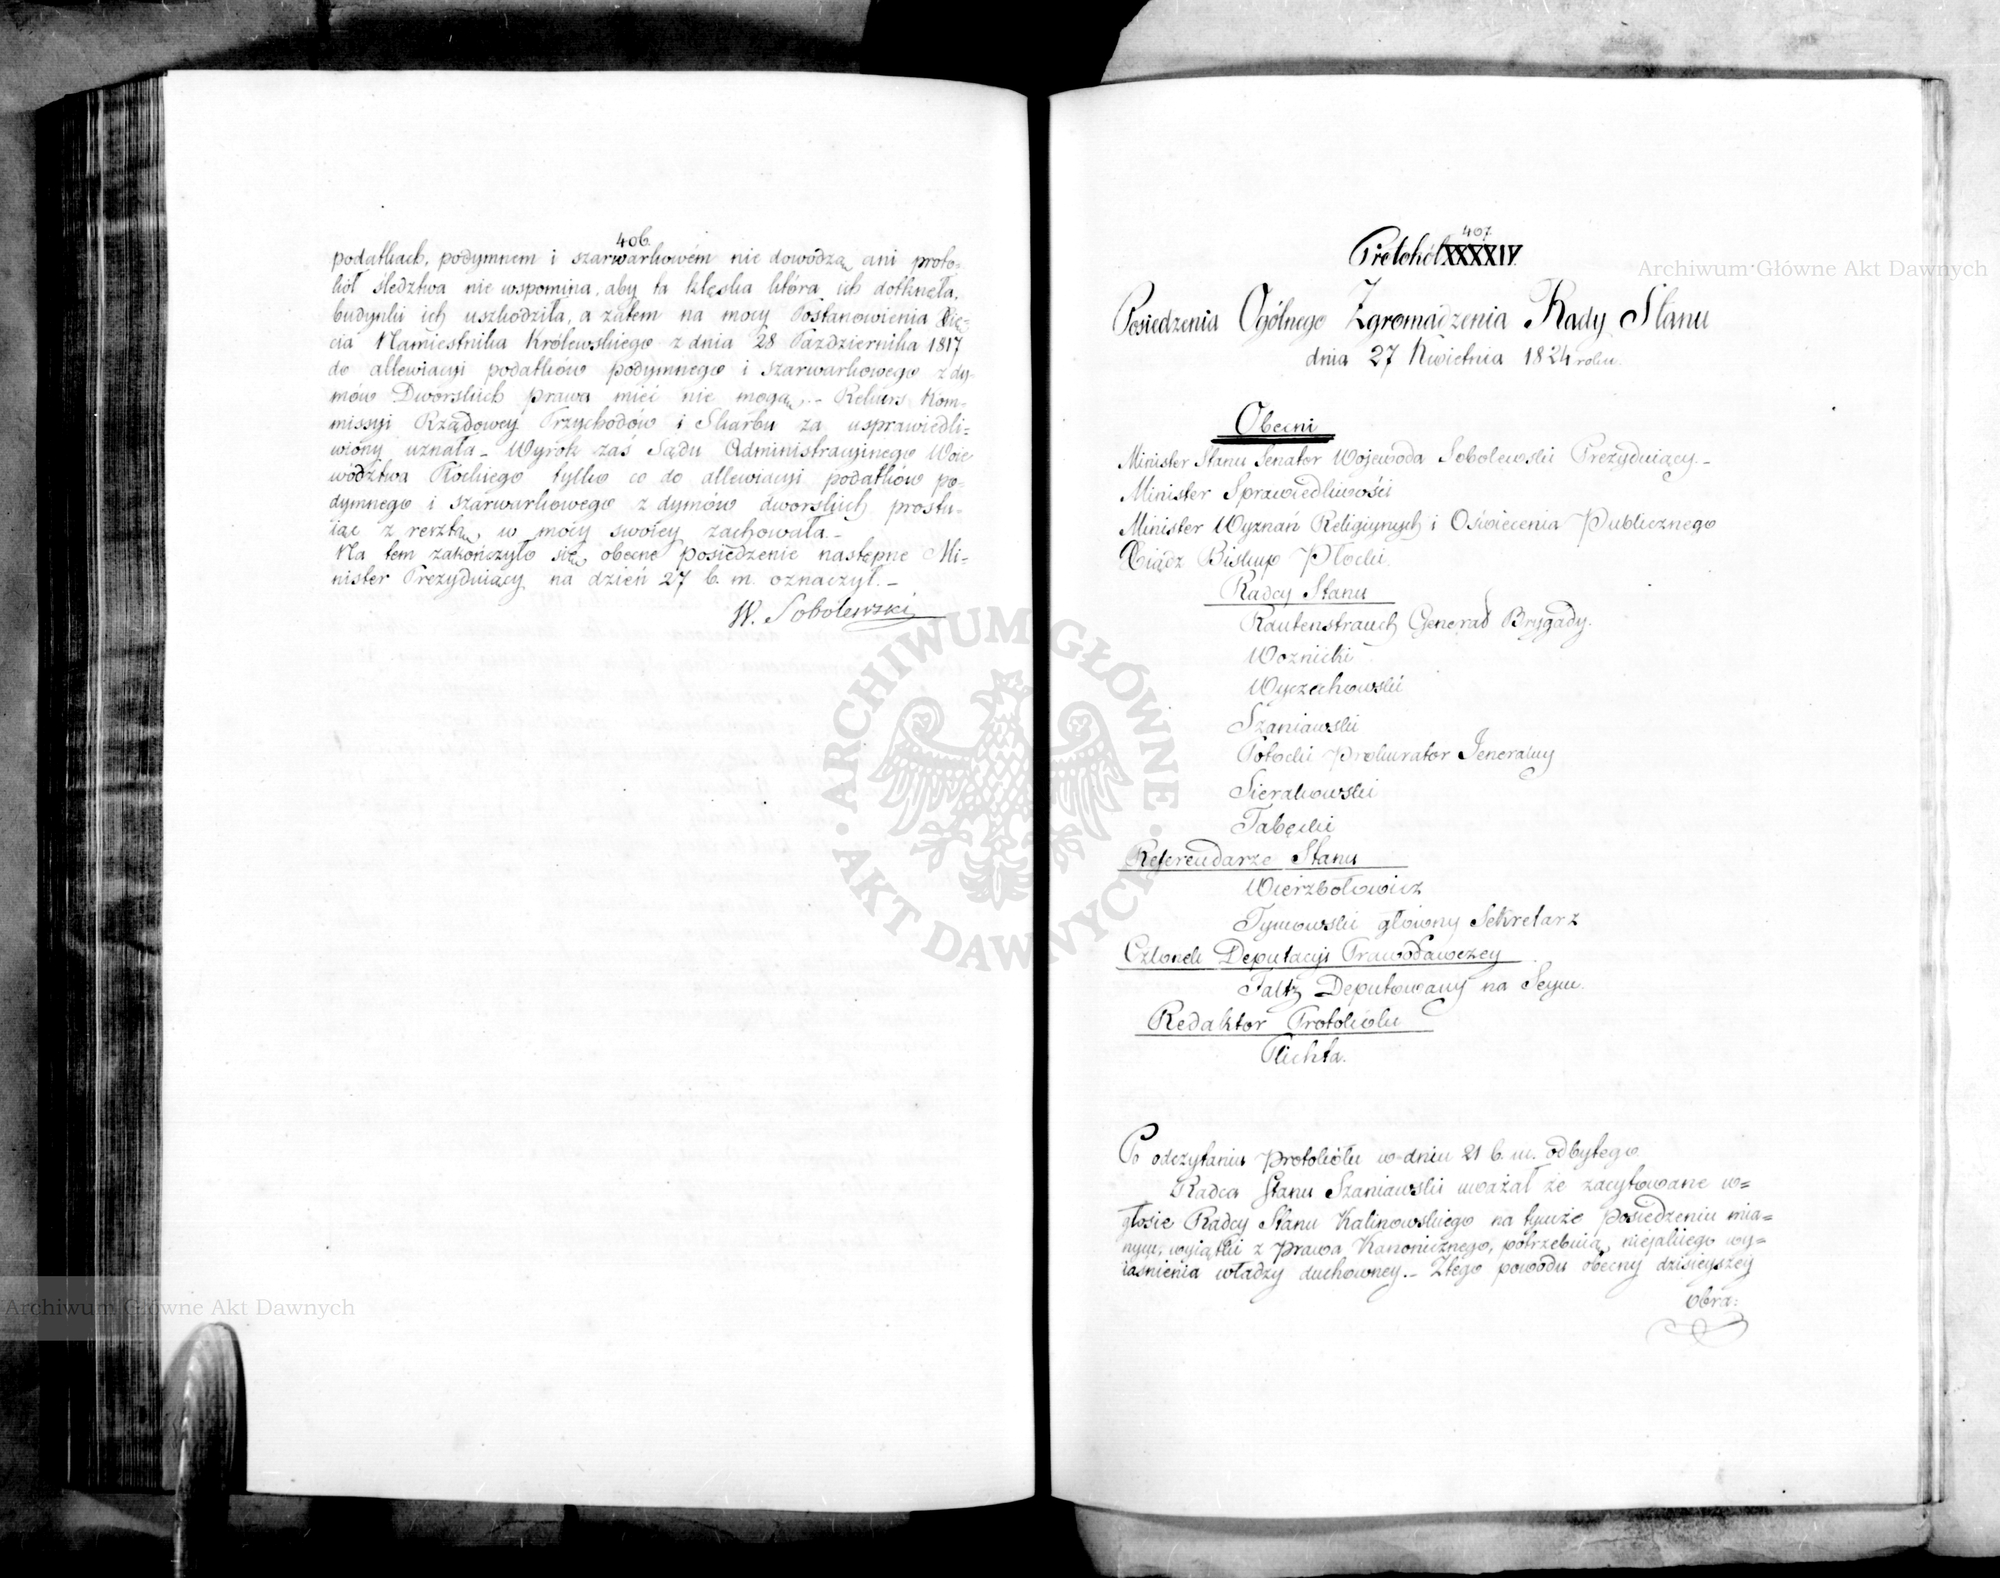 406.
podatkach, podymnem i szarwarkowém nie dowodzą ani proto-
kół śledztwa nie wspomina, aby ta klęska która ich dotknęła,
budynki ich uszkodziła, a zatem na mocy Postanowienia Xię-
cia Namiestnika Królewskiego z dnia 28 Października 1817
do allewiacyi podatków podymnego i szarwarkowego z dy-
mów Dworskich prawa mieć nie mogą, – Rekurs Kom-
missyi Rządowey Przychodów i Skarbu za usprawiedli-
wiony uznała – Wyrok zaś Sądu Administracyinego Woie-
wództwa Płockiego tylko co do allewiacyi podatków po-
dymnego i szarwarkowego z dymów dworskich prostu-
iąc z resztą, w mocy swoiey zachowała. –
Na tem zakończyło się obecne posiedzenie następne Mi-
nister Prezyduiący na dzień 27 b. m. oznaczył. –
W. Sobolewski
407.
Protokół XXXXIV.
Posiedzenia Ogólnego Zgromadzenia Rady Stanu
dnia 27 Kwietnia 1824 roku.
Obecni
Minister Stanu Senator Wojewoda Sobolewski Prezyduiący. –
Minister Sprawiedliwości
Minister Wyznań Religiynych i Oświecenia Publicznego
Xiądz Biskup Płocki.
Radcy Stanu
Rautenstrauch Generał Brygady.
Woznicki
Wyczechowski
Szaniawski
Potocki Prokurator Jeneralny
Sierakowski
Tabęcki
Referendarze Stanu
Wierzbołowicz
Tymowski główny Sekretarz
Członek Deputacyi Prawodawczey
Faltz Deputowany na Seym.
Redaktor Protokółu
Plichta.
Po odczytaniu Protokółu w dniu 21 b. m. odbytego
Radca Stanu Szaniawski uważał że zacytowane w=
głosie Radcy Stanu Kalinowskiego na tymże Posiedzeniu mia=
nym, wyiątki z Prawa Kanonicznego, potrzebuią niejakiego wy=
iaśnienia władzy duchowney. – Z tego powodu obecny dzisieyszey
obra:
Archiwum Główne Akt Dawnych
Archiwum Główne Akt Dawnych
ARCHIWUM GŁÓWNE AKT DAWNYCH